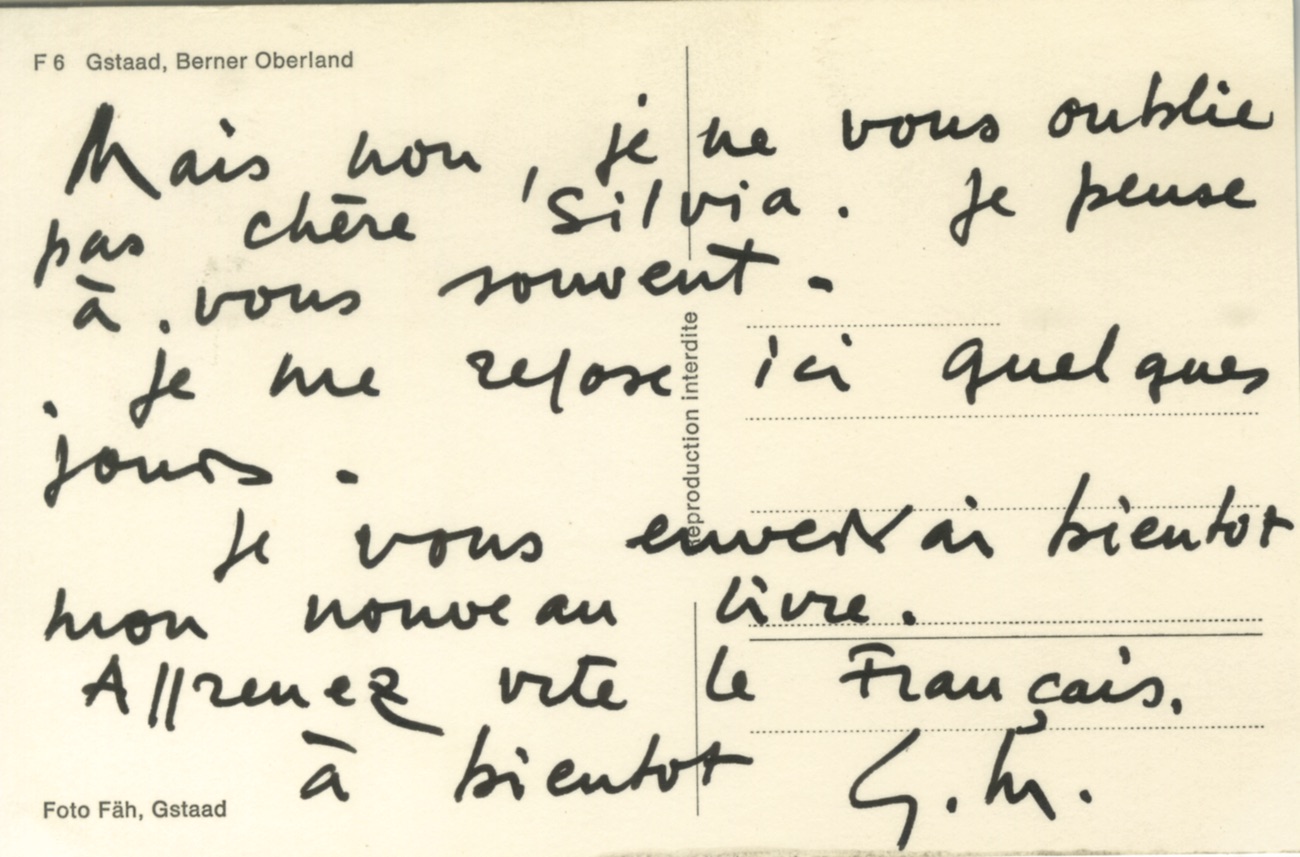 F 6 Gstaad, Berner Oberland
Mais non, je ne vous oublie
pas chère Silvia. Je pense
à vous souvent.
Je me repose ici quelques
jours.
Je vous enverrai bientot
mon nouveau livre.
Apprenez vite le Français.
à bientot G. M.
Reproduction interdite
Foto Fäh, Gstaad